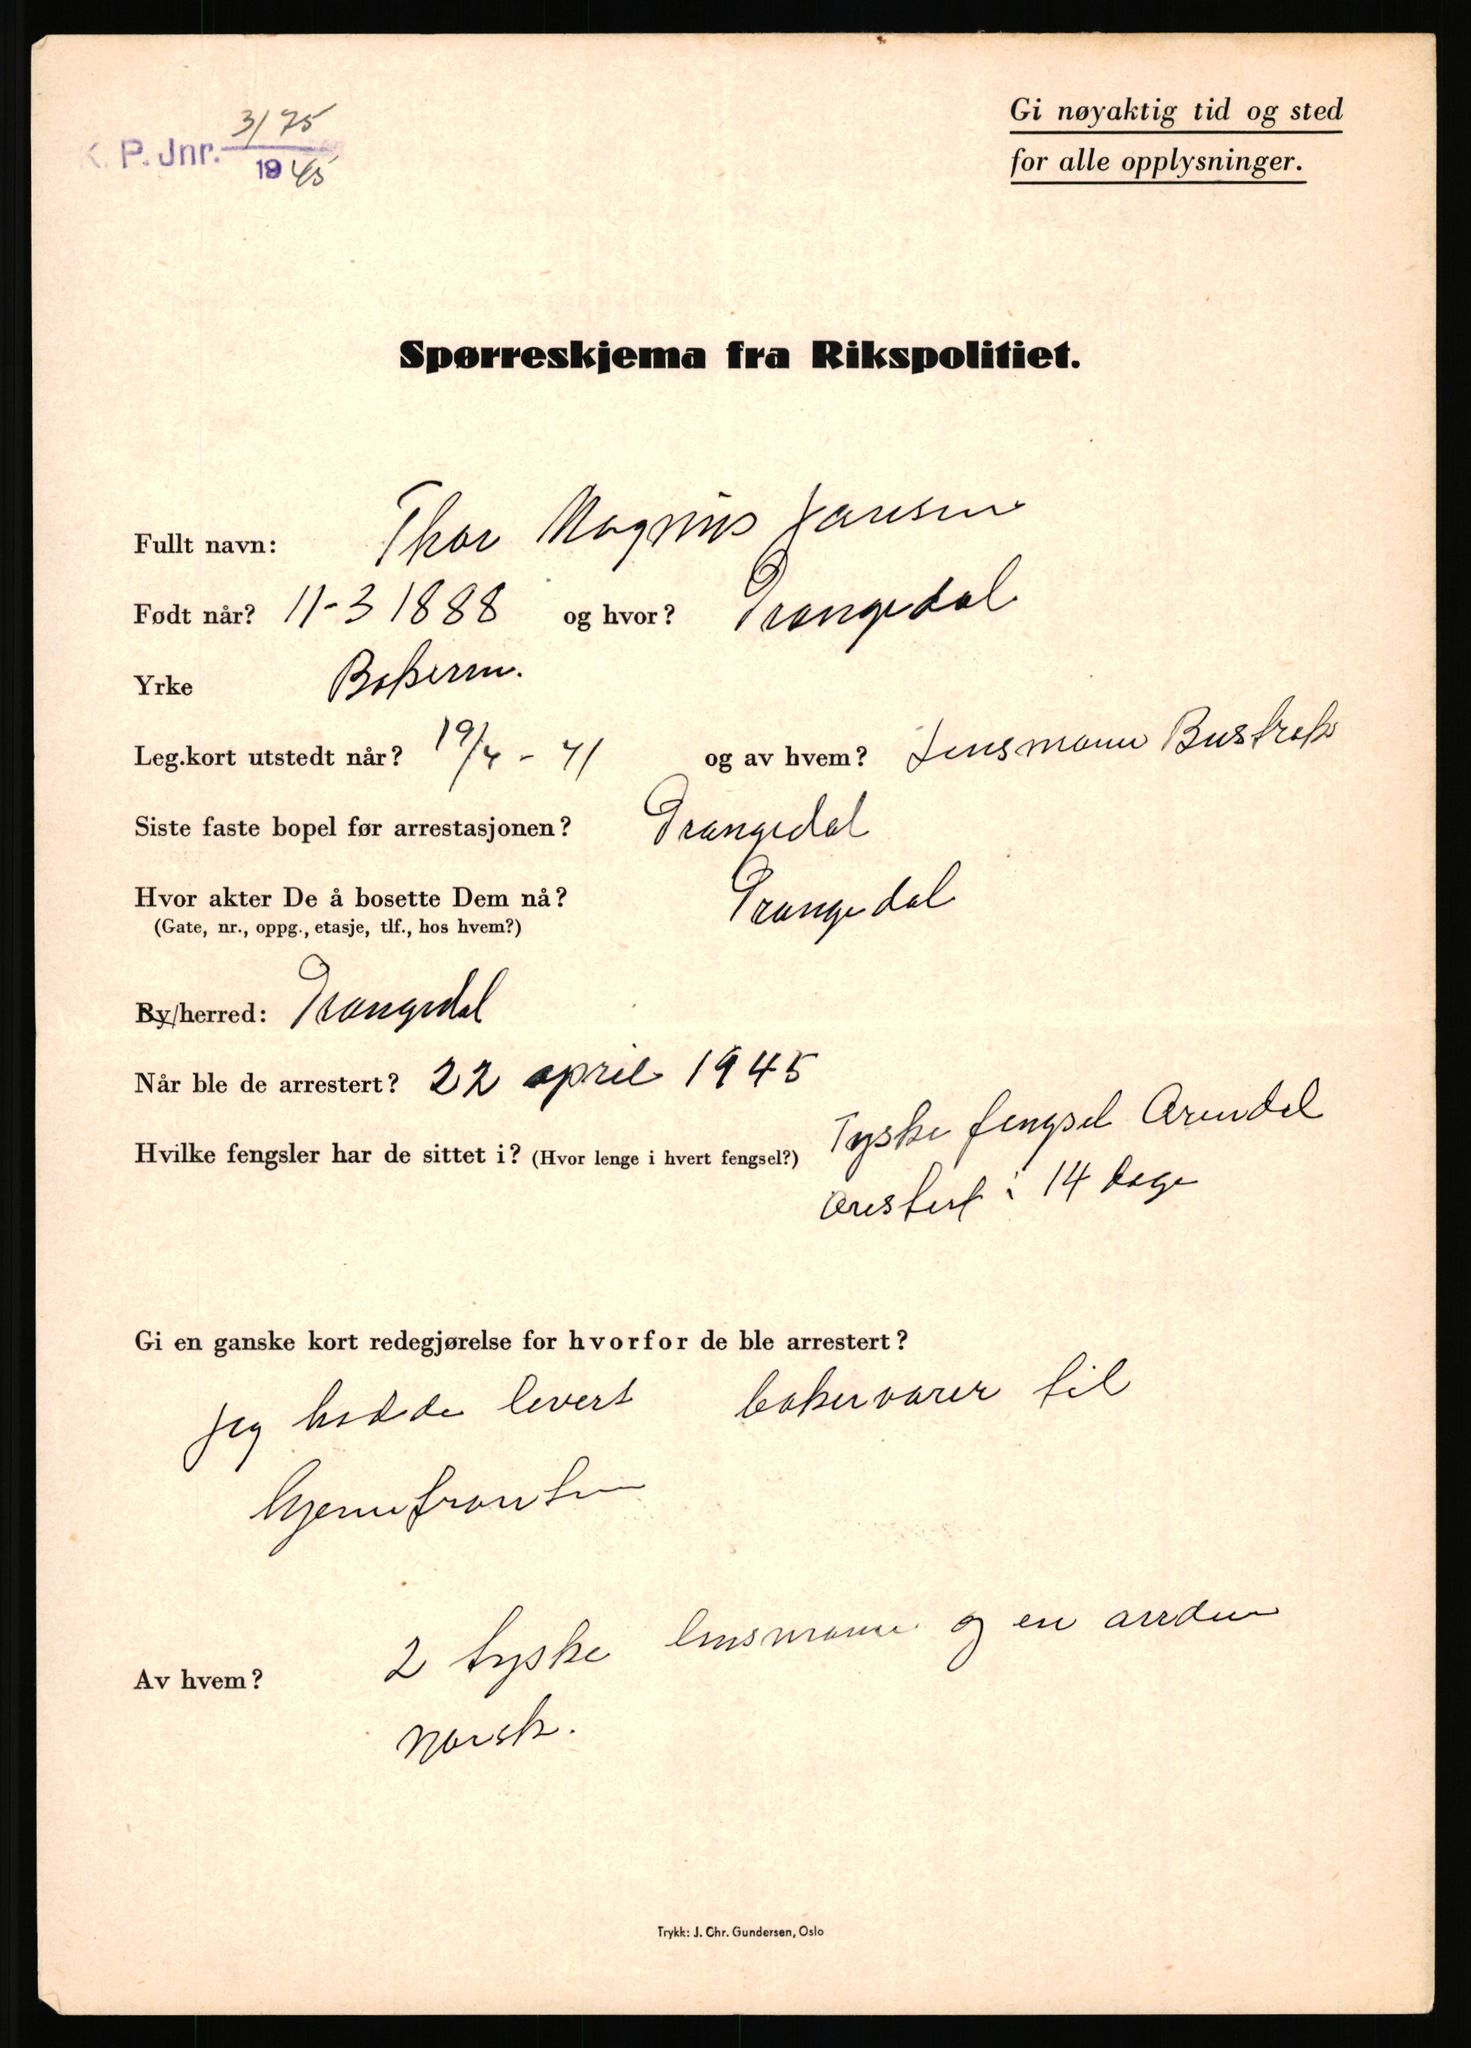 K. P. Jnr. 3175
1945
Gi nøyaktig tid og sted
for alle opplysninger.
Spørreskjema fra Rikspolitiet.
Fullt navn: Thor Magnus Jansen
Født når? 11-3 1888 og hvor? Drangedal
Yrke Bakerm.
Leg.kort utstedt når? 19/4 - 41 og av hvem? Lensmann Bustrak
Siste faste bopel før arrestasjonen? Drangedal
Hvor akter De å bosette Dem nå? Drangedal
(Gate, nr., oppg., etasje, tlf., hos hvem?)
By/herred: Drangedal
Når ble de arrestert? 22 april 1945
Hvilke fengsler har de sittet i? (Hvor lenge i hvert fengsel?) Tyske fengsel Arendal
arestert i 14 dage
Gi en ganske kort redegjørelse for hvorfor de ble arrestert?
jeg hadde levert bakervarer til
hjemefronten
Av hvem? 2 tyske lensmann og en anden
norsk.
Trykk: J. Chr. Gundersen, Oslo